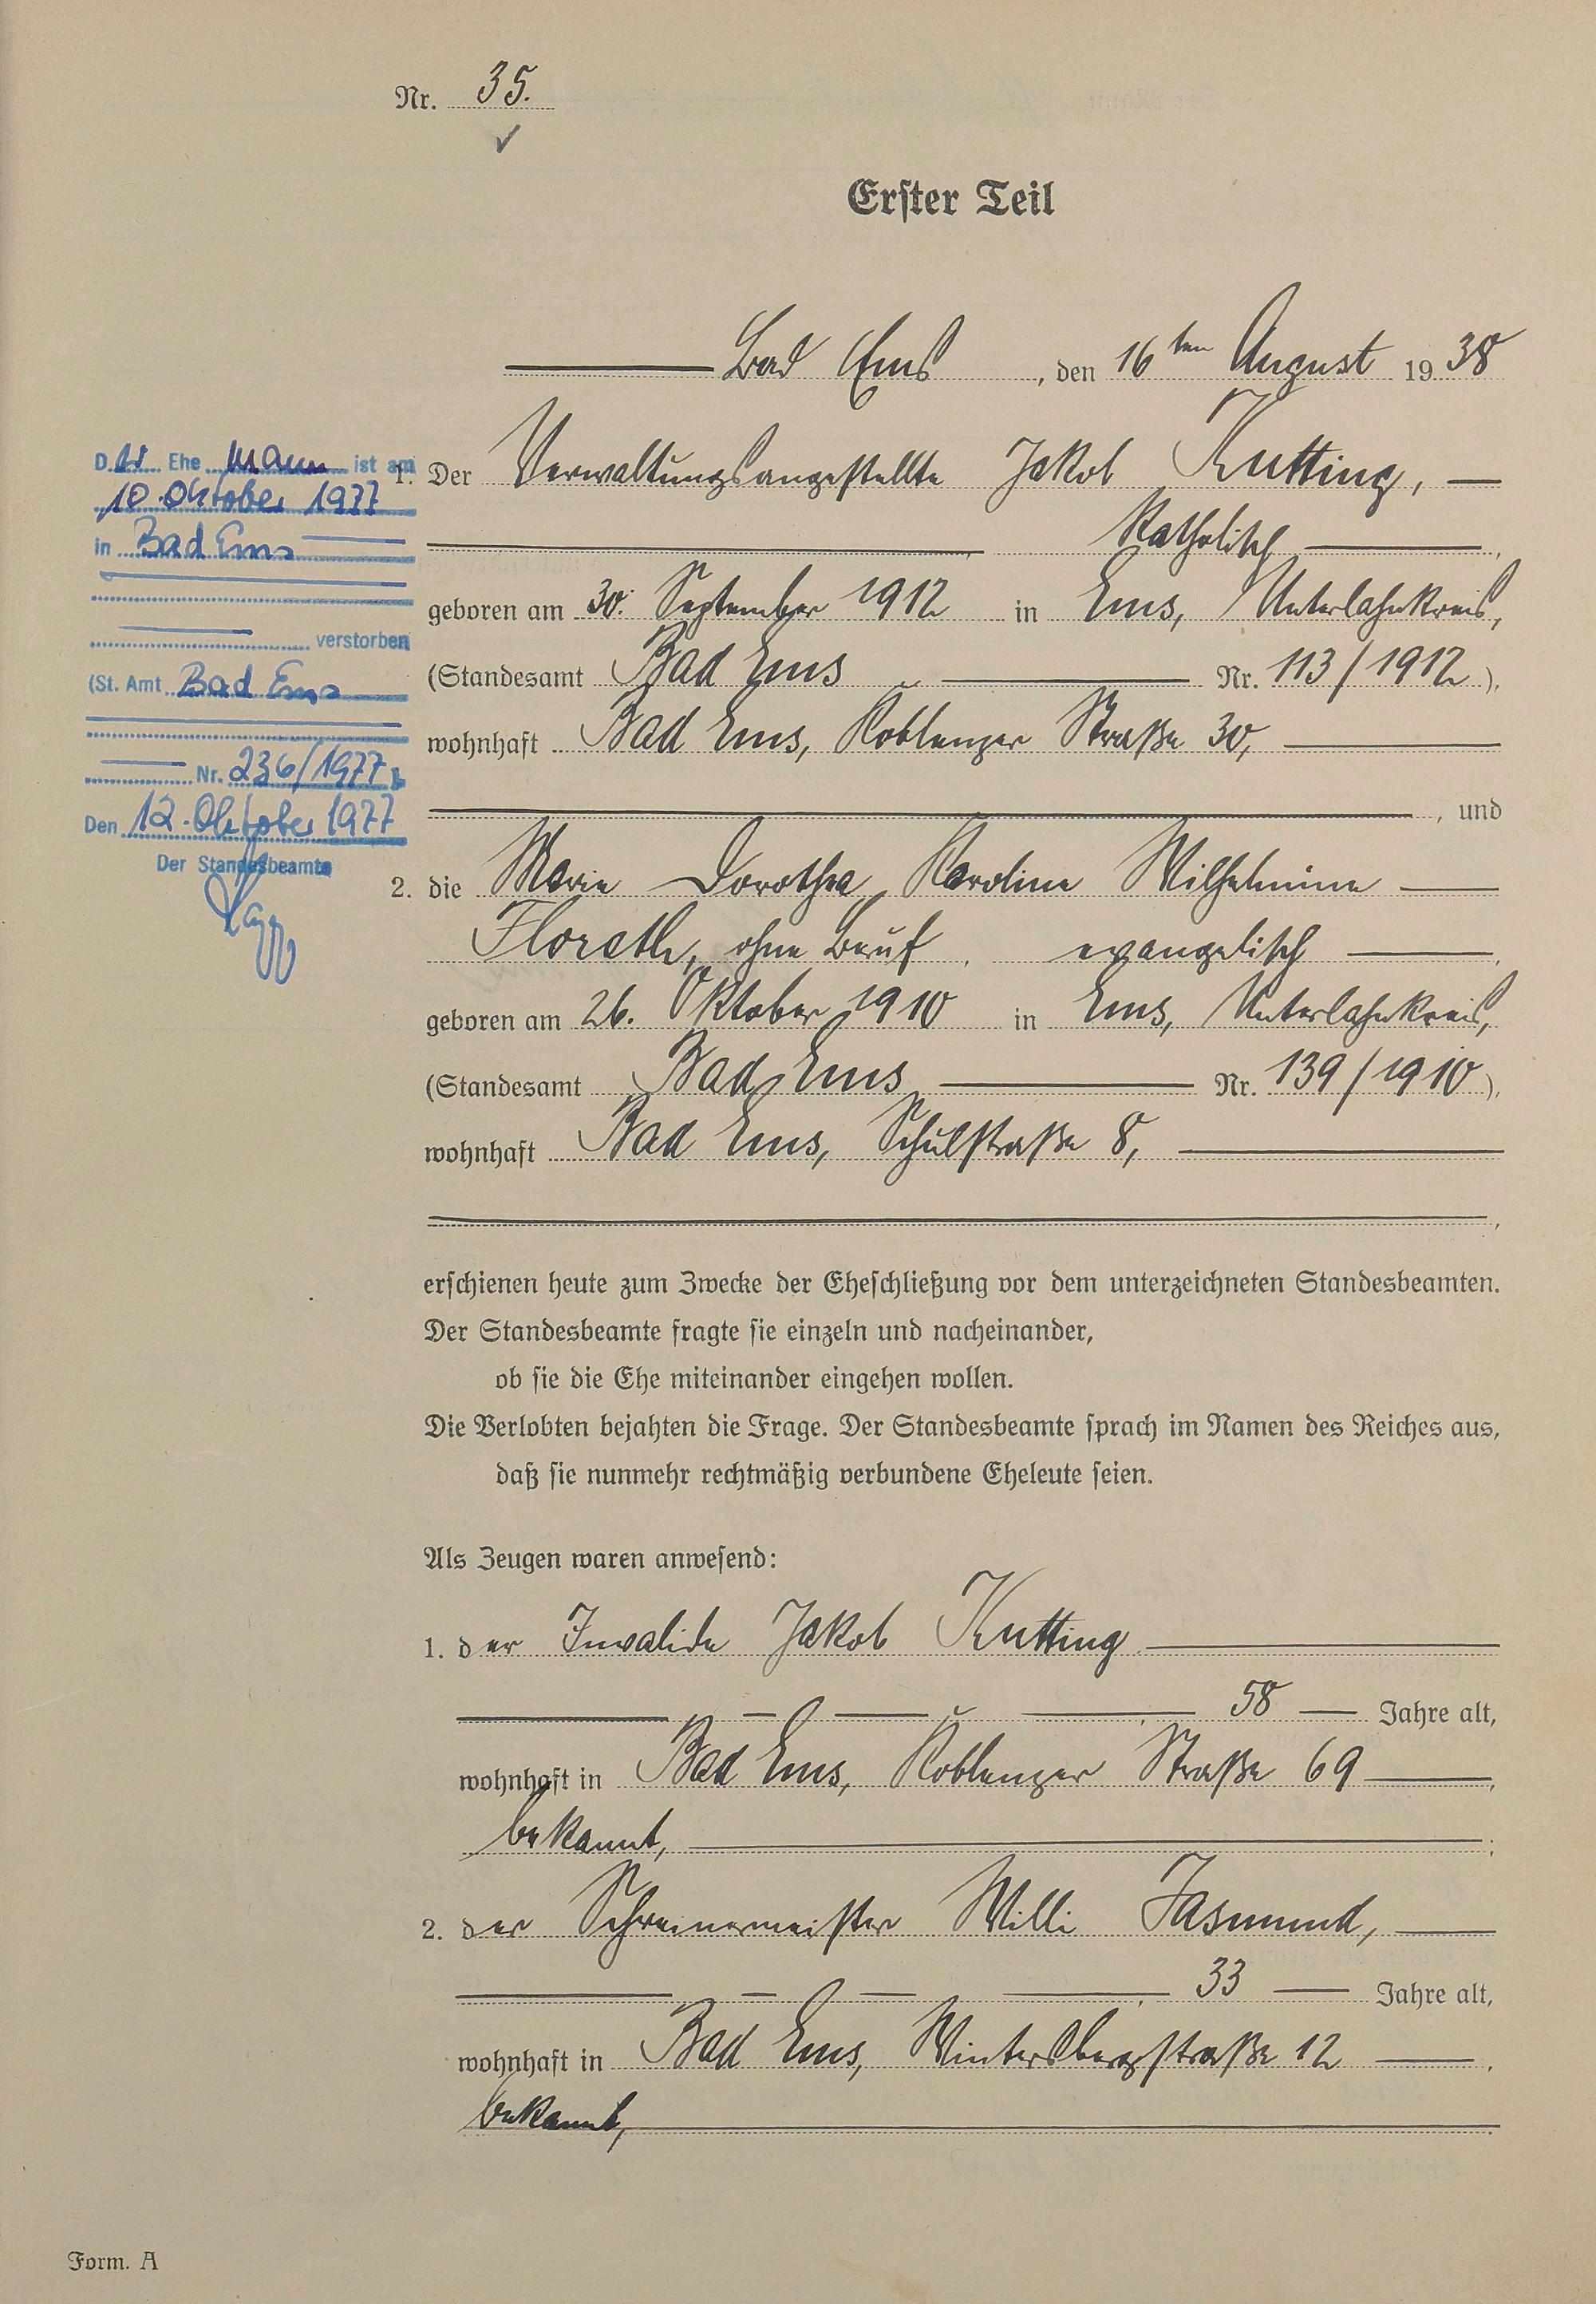 Nr. 35.
Erster Teil
Bad Ems, den 16ten August 1938
1. Der Verwaltungsangestellte Jakob Kutting,
Katholisch,
geboren am 30. September 1912 in Ems, Unterlahnkreis,
(Standesamt Bad Ems Nr. 113/1912),
wohnhaft Bad Ems, Koblenzer Straße 30,
, und
2. die Marie Dorothea Karoline Wilhelmine
Florath, ohne Beruf, evangelisch,
geboren am 26. Oktober 1910 in Ems, Unterlahnkreis,
(Standesamt Bad Ems Nr. 139/1910),
wohnhaft Bad Ems, Schulstraße 8,
erschienen heute zum Zwecke der Eheschließung vor dem unterzeichneten Standesbeamten.
Der Standesbeamte fragte sie einzeln und nacheinander,
ob sie die Ehe miteinander eingehen wollen.
Die Verlobten bejahten die Frage. Der Standesbeamte sprach im Namen des Reiches aus,
daß sie nunmehr rechtmäßig verbundene Eheleute seien.
Als Zeugen waren anwesend:
1. der Invalide Jakob Kutting
58 Jahre alt,
wohnhaft in Bad Ems, Koblenzer Straße 69,
bekannt,;
2. der Schreinermeister Willi Jasmund,
33 Jahre alt,
wohnhaft in Bad Ems, Wintersbergstraße 12,
bekannt,
D.er Ehe mann ist am
10. Oktober 1977
in Bad Ems
verstorben
(St. Amt Bad Ems
Nr. 236/1977)
Den 12. Oktober 1977
Der Standesbeamte
Form. A